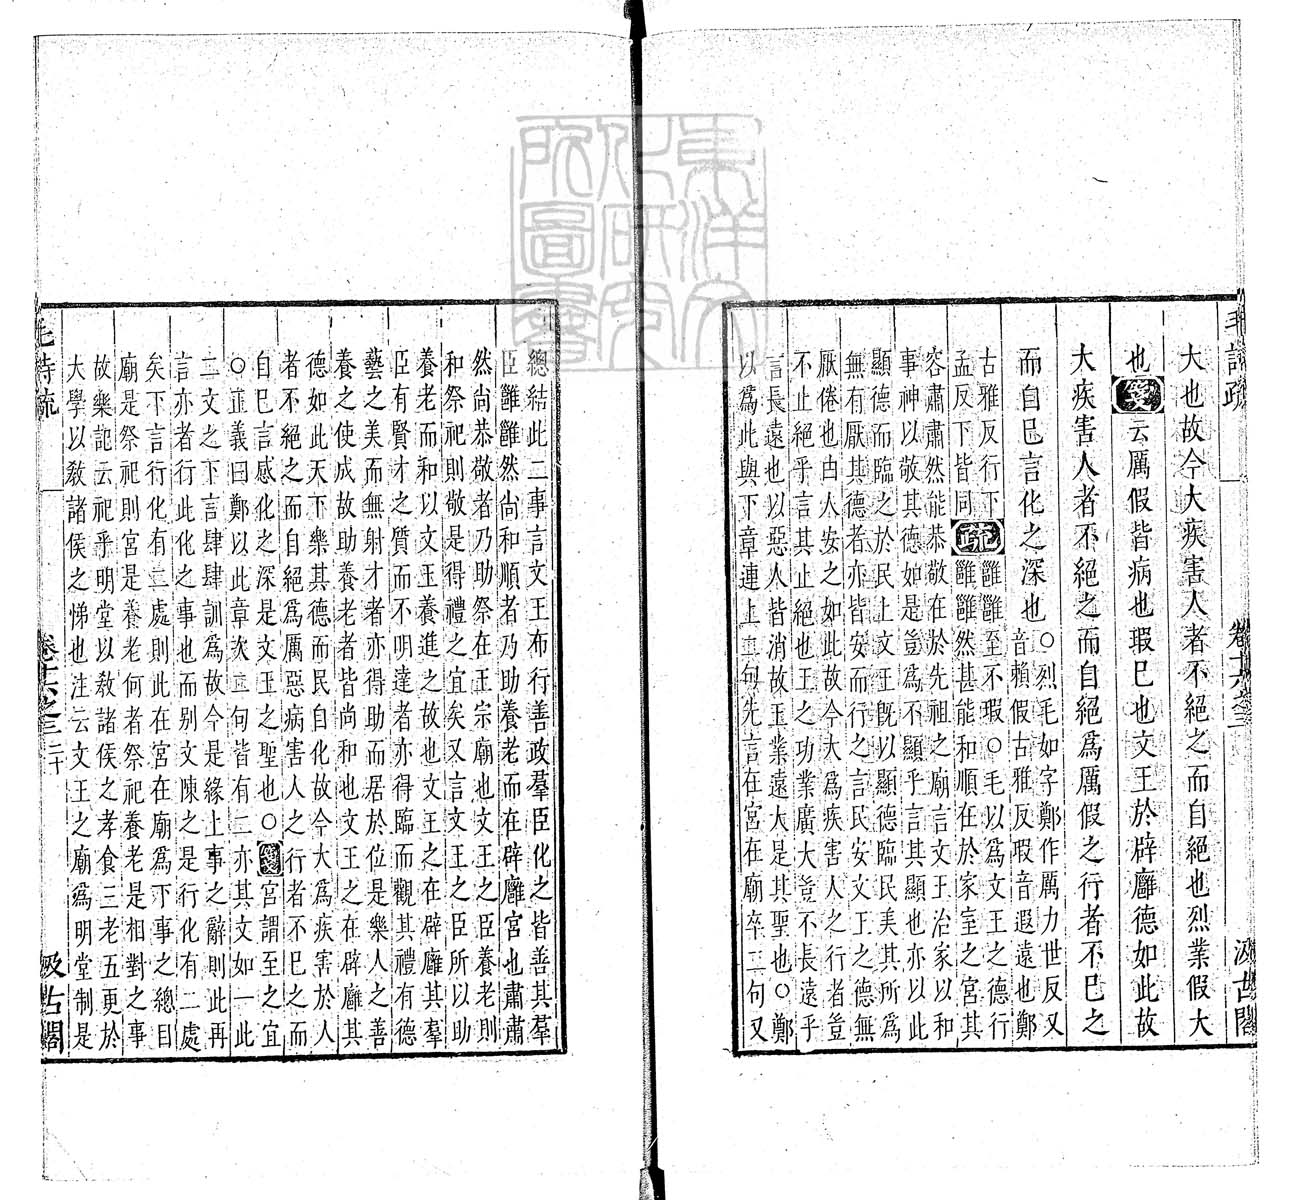 大也故今大疾害人者不絕之而自絕也烈業假大
也箋云厲假皆病也瑕巳也文王於辟廱德如此故
大疾害人者不絕之而自絕爲厲假之行者不巳之
而自巳言化之深也
○烈毛如字鄭作厲力世反又
音賴假古雅反瑕音遐遠也鄭
古雅反行下
孟反下皆同
疏
雝雝至不瑕○毛以爲文王之德行
雝雝然甚能和順在於家室之宮其
容肅肅然能恭敬在於先祖之廟言文王治家以和
事神以敬其德如是豈爲不顯乎言其顯也亦以此
顯德而臨之於民上文王旣以顯德臨民美其所爲
無有厭其德者亦皆安而行之言民安文王之德無
厭倦也古人安之如此故今大爲疾害人之行者豈
不止絕乎言其止絕也王之功業廣大豈不長遠乎
言長遠也以惡人皆消故王業遠大是其聖也○鄭
以爲此與下章連上二句先言在宮在廟卒二句又
毛詩疏
卷十六之三
汲古閣
總結此二事言文王布行善政羣臣化之皆善其羣
臣雝雝然尚和順者乃助養老而在辟廱宮也肅肅
然尚恭敬者乃助祭在王宗廟也文王之臣養老則
和祭祀則敬是得禮之宜矣又言文王之臣所以助
養老而和以文王養進之故也文王之在辟廱其羣
臣有賢才之質而不明達者亦得臨而觀其禮有德
藝之美而無射才者亦得助而居於位是樂人之善
養之使成故助養老者皆尚和也文王之在辟廱其
德如此天下樂其德而民自化故今大爲疾害於人
者不絕之而自絕爲厲惡病害人之行者不巳之而
自巳言感化之深是文王之聖也○箋宮謂至之宜
○正義曰鄭以此章次二句皆有二亦其文如一此
二文之下言肆肆訓爲故今是緣上事之辭則此再
言亦者行此化之事也而別文陳之是行化有二處
矣下言行化有二處則此在宮在廟爲下事之總目
廟是祭祀則宮是養老何者祭祀養老是相對之事
故樂記云祀乎明堂以敎諸侯之孝食三老五更於
大學以敎諸侯之悌也注云文王之廟爲明堂制是
毛詩疏
卷十六之三
二十
汲古閣